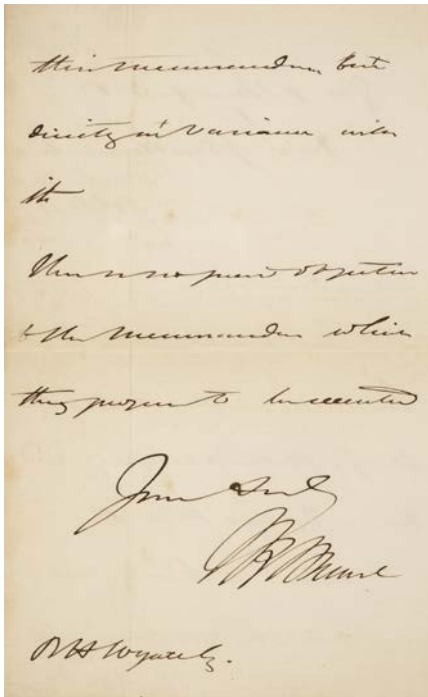 this memorandum but
directly in variance with
it
There is no                objection
to the memorandum which
they propose to be executed
Yours truly
R H Wyatt Esq.